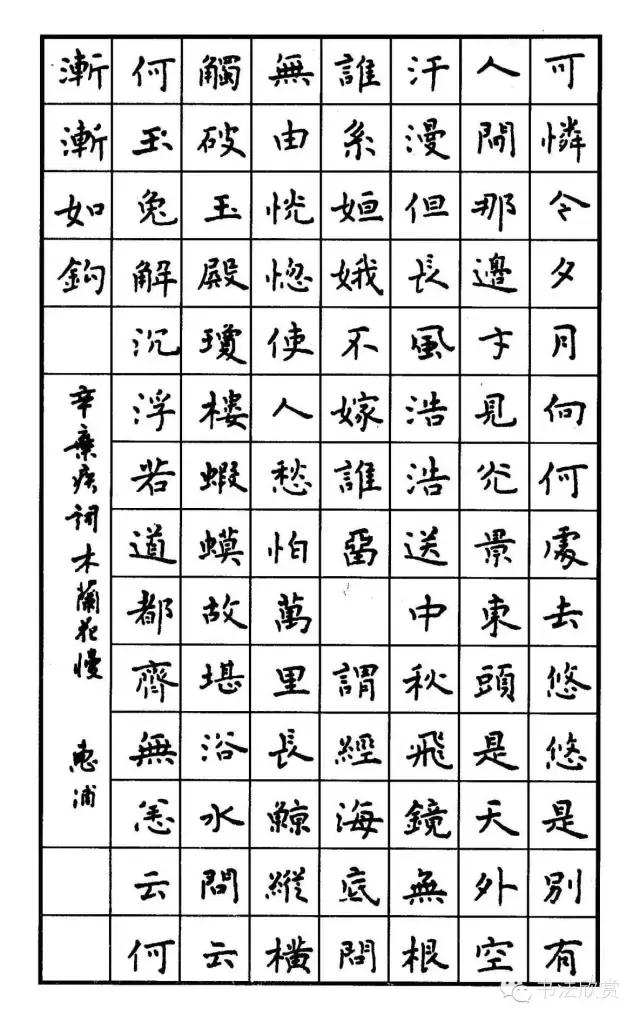 可憐今夕月向何處去悠悠是別有
人間那邊才見光景東頭是天外空
汗漫但長風浩浩送中秋飛鏡無根
誰系姮娥不嫁誰留 謂經海底問
無由恍惚使人愁怕萬里長鯨縱橫
觸破玉殿瓊樓蝦蟆故堪浴水問云
何玉兔解沉浮若道都齊無恙云何
漸漸如鈎
辛棄疾詞木蘭花慢 惠浦
书法欣赏